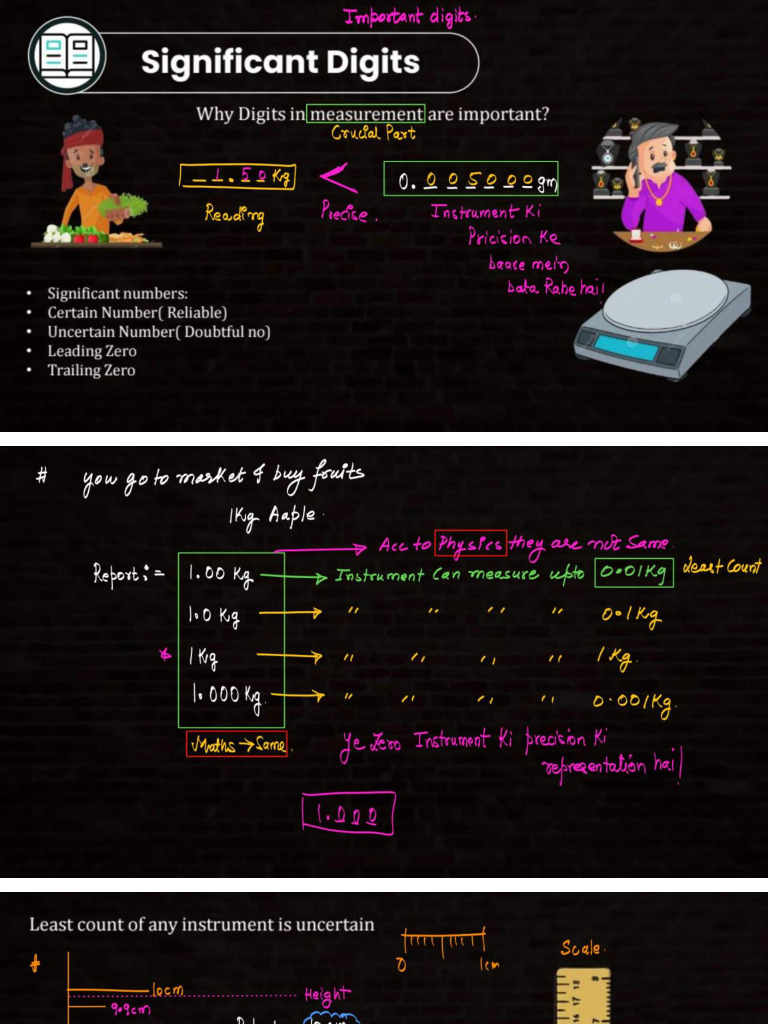 Important digits.
Significant Digits
Why Digits in measurement are important?
Crucial Part
_ 1.50 Kg < 0.005000gm
Reading Precise. Instrument Ki
Pricision Ke
baare mein
bata Rahe hai!
• Significant numbers:
• Certain Number( Reliable)
• Uncertain Number( Doubtful no)
• Leading Zero
• Trailing Zero
# you go to market & buy fruits
1Kg Aaple.
Acc to Physics they are not Same.
Report := 1.00 Kg. → Instrument Can measure upto 0.01Kg Least Count
1.0 Kg → " " " " 0.1Kg
* 1Kg → " " " " 1Kg.
1.000 Kg. → " " " " 0.001Kg.
Maths → Same. Ye Zero Instrument Ki precision Ki
representation hai|
1.000
Least count of any instrument is uncertain
#
0 1cm
Scale.
10cm
Height
9.9cm